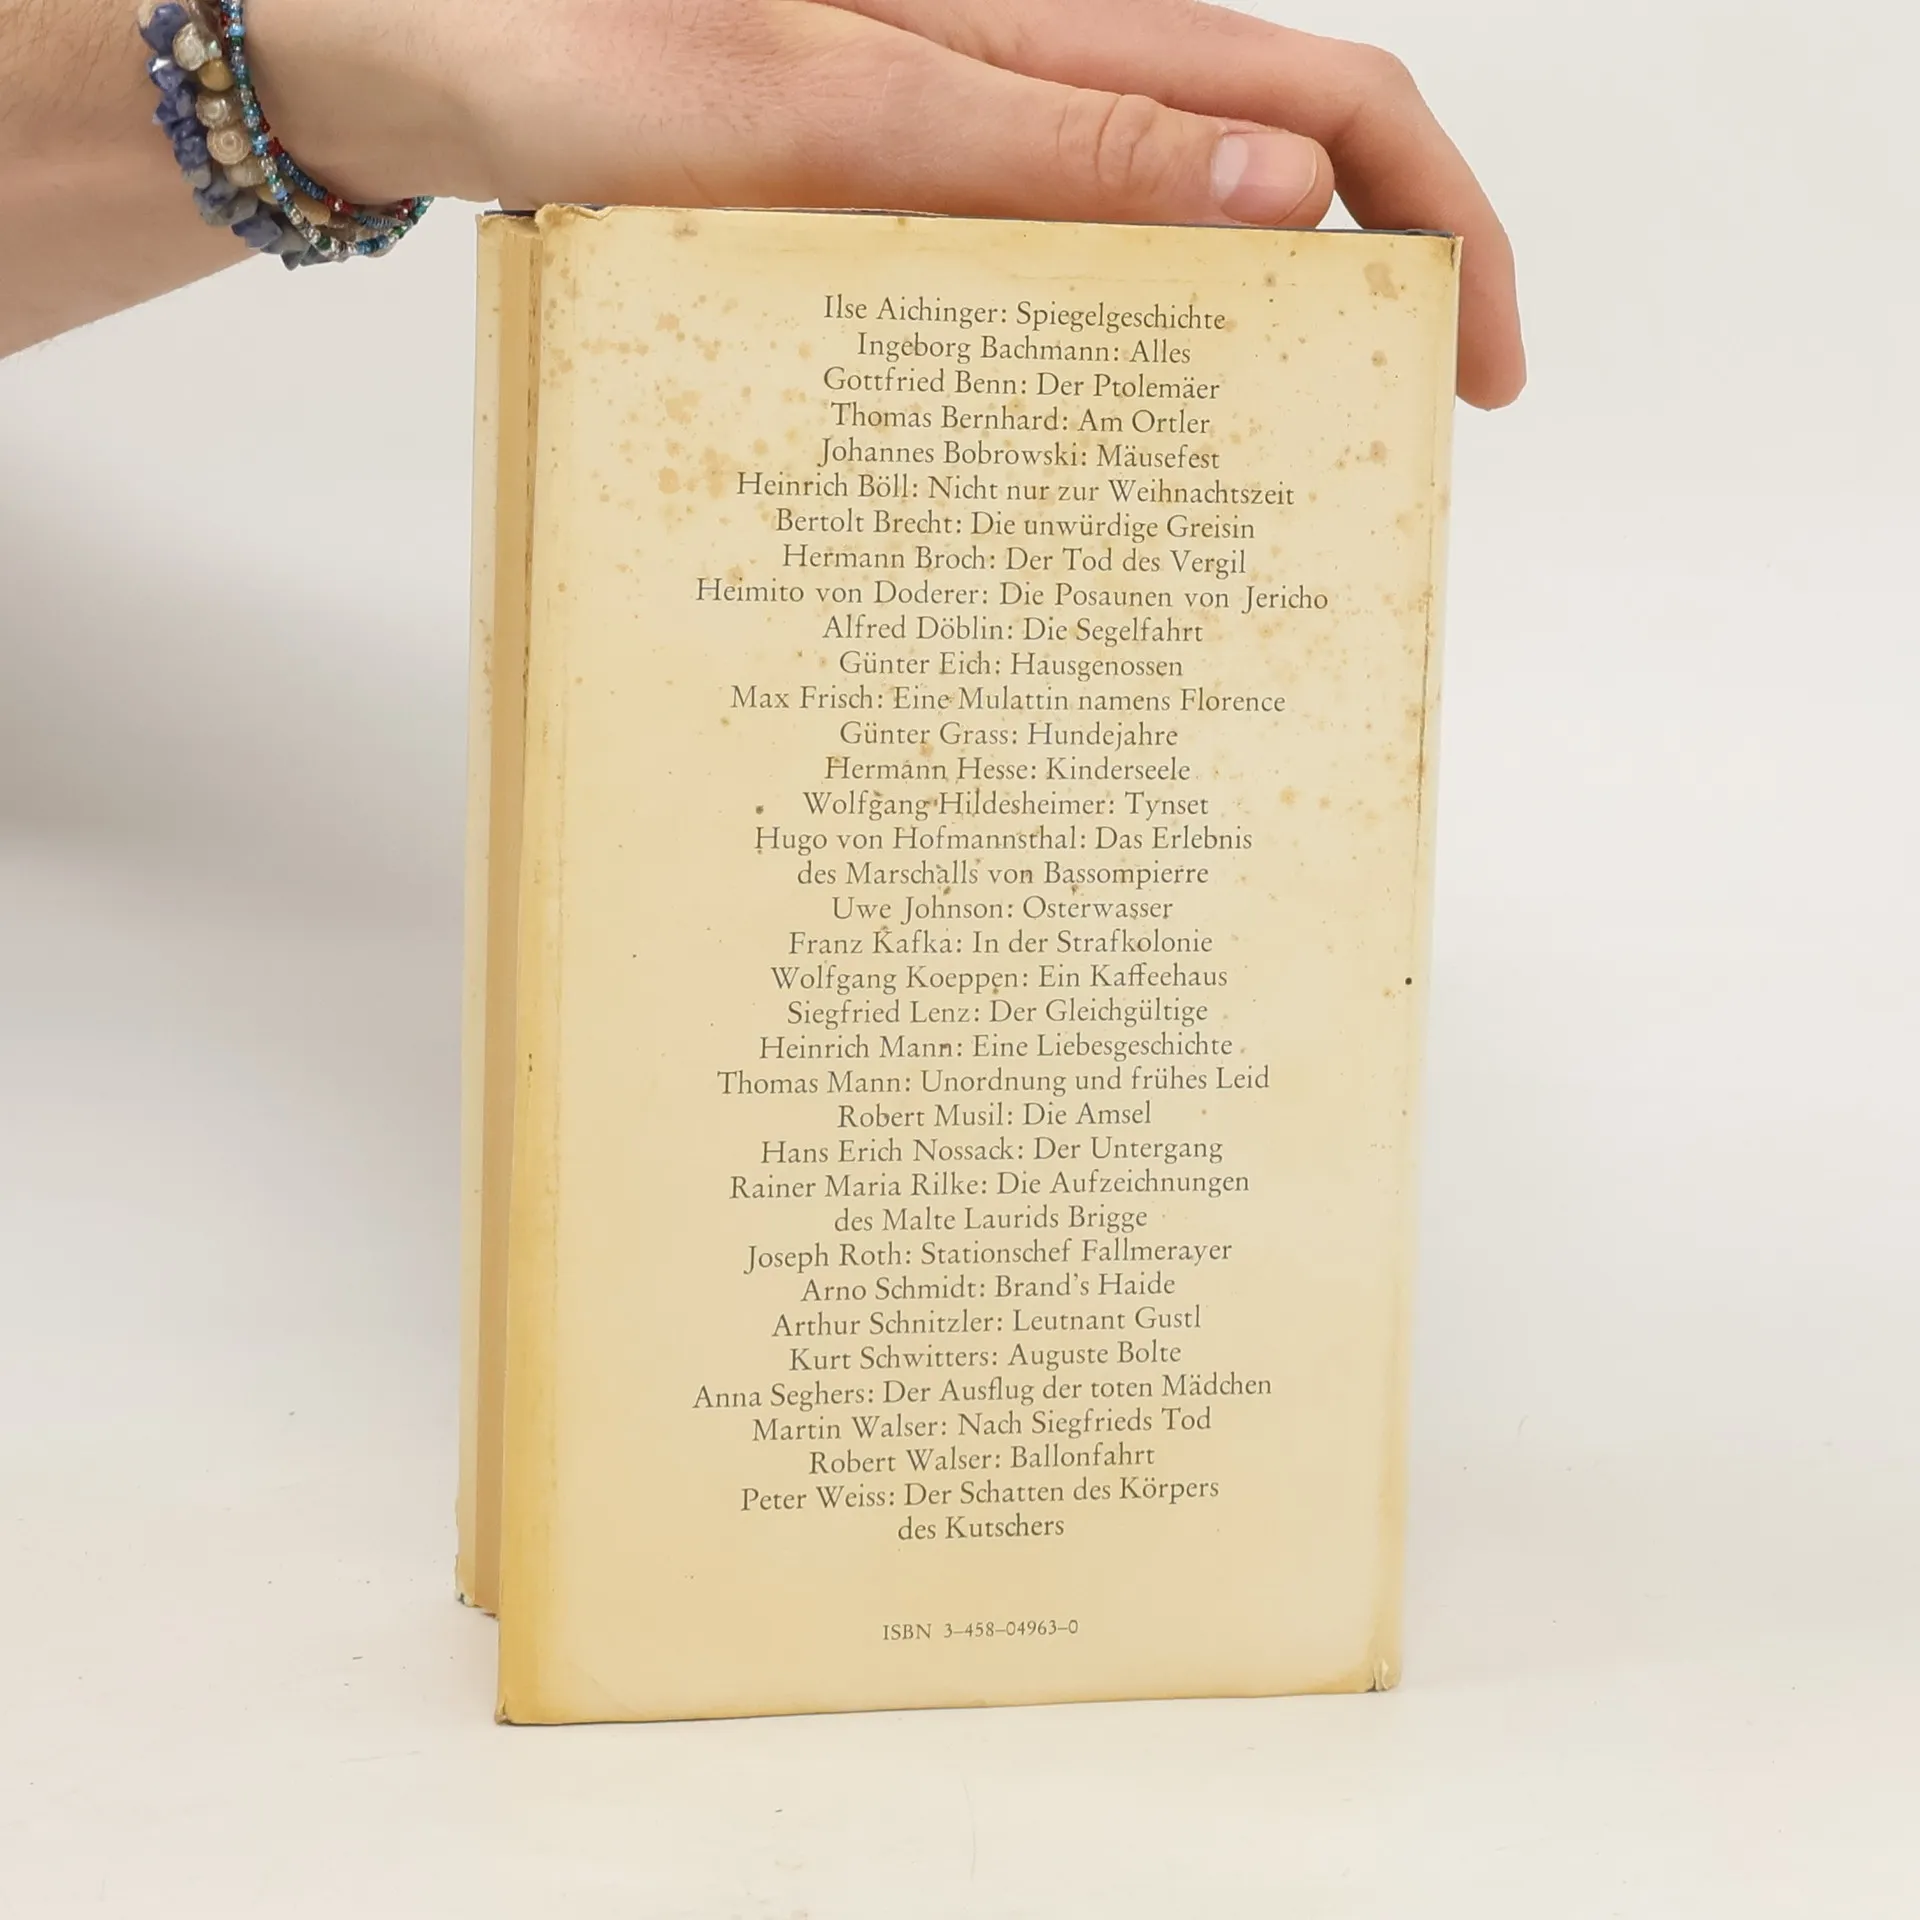 Ilse Aichinger: Spiegelgeschichte
Ingeborg Bachmann: Alles
Gottfried Benn: Der Ptolemäer
Thomas Bernhard: Am Ortler
Johannes Bobrowski: Mäusefest
Heinrich Böll: Nicht nur zur Weihnachtszeit
Bertolt Brecht: Die unwürdige Greisin
Hermann Broch: Der Tod des Vergil
Heimito von Doderer: Die Posaunen von Jericho
Alfred Döblin: Die Segelfahrt
Günter Eich: Hausgenossen
Max Frisch: Eine Mulattin namens Florence
Günter Grass: Hundejahre
Hermann Hesse: Kinderseele
Wolfgang Hildesheimer: Tynset
Hugo von Hofmannsthal: Das Erlebnis
des Marschalls von Bassompierre
Uwe Johnson: Osterwasser
Franz Kafka: In der Strafkolonie
Wolfgang Koeppen: Ein Kaffeehaus
Siegfried Lenz: Der Gleichgültige
Heinrich Mann: Eine Liebesgeschichte
Thomas Mann: Unordnung und frühes Leid
Robert Musil: Die Amsel
Hans Erich Nossack: Der Untergang
Rainer Maria Rilke: Die Aufzeichnungen
des Malte Laurids Brigge
Joseph Roth: Stationschef Fallmerayer
Arno Schmidt: Brand's Haide
Arthur Schnitzler: Leutnant Gustl
Kurt Schwitters: Auguste Bolte
Anna Seghers: Der Ausflug der toten Mädchen
Martin Walser: Nach Siegfrieds Tod
Robert Walser: Ballonfahrt
Peter Weiss: Der Schatten des Körpers
des Kutschers
ISBN 3-458-04963-0